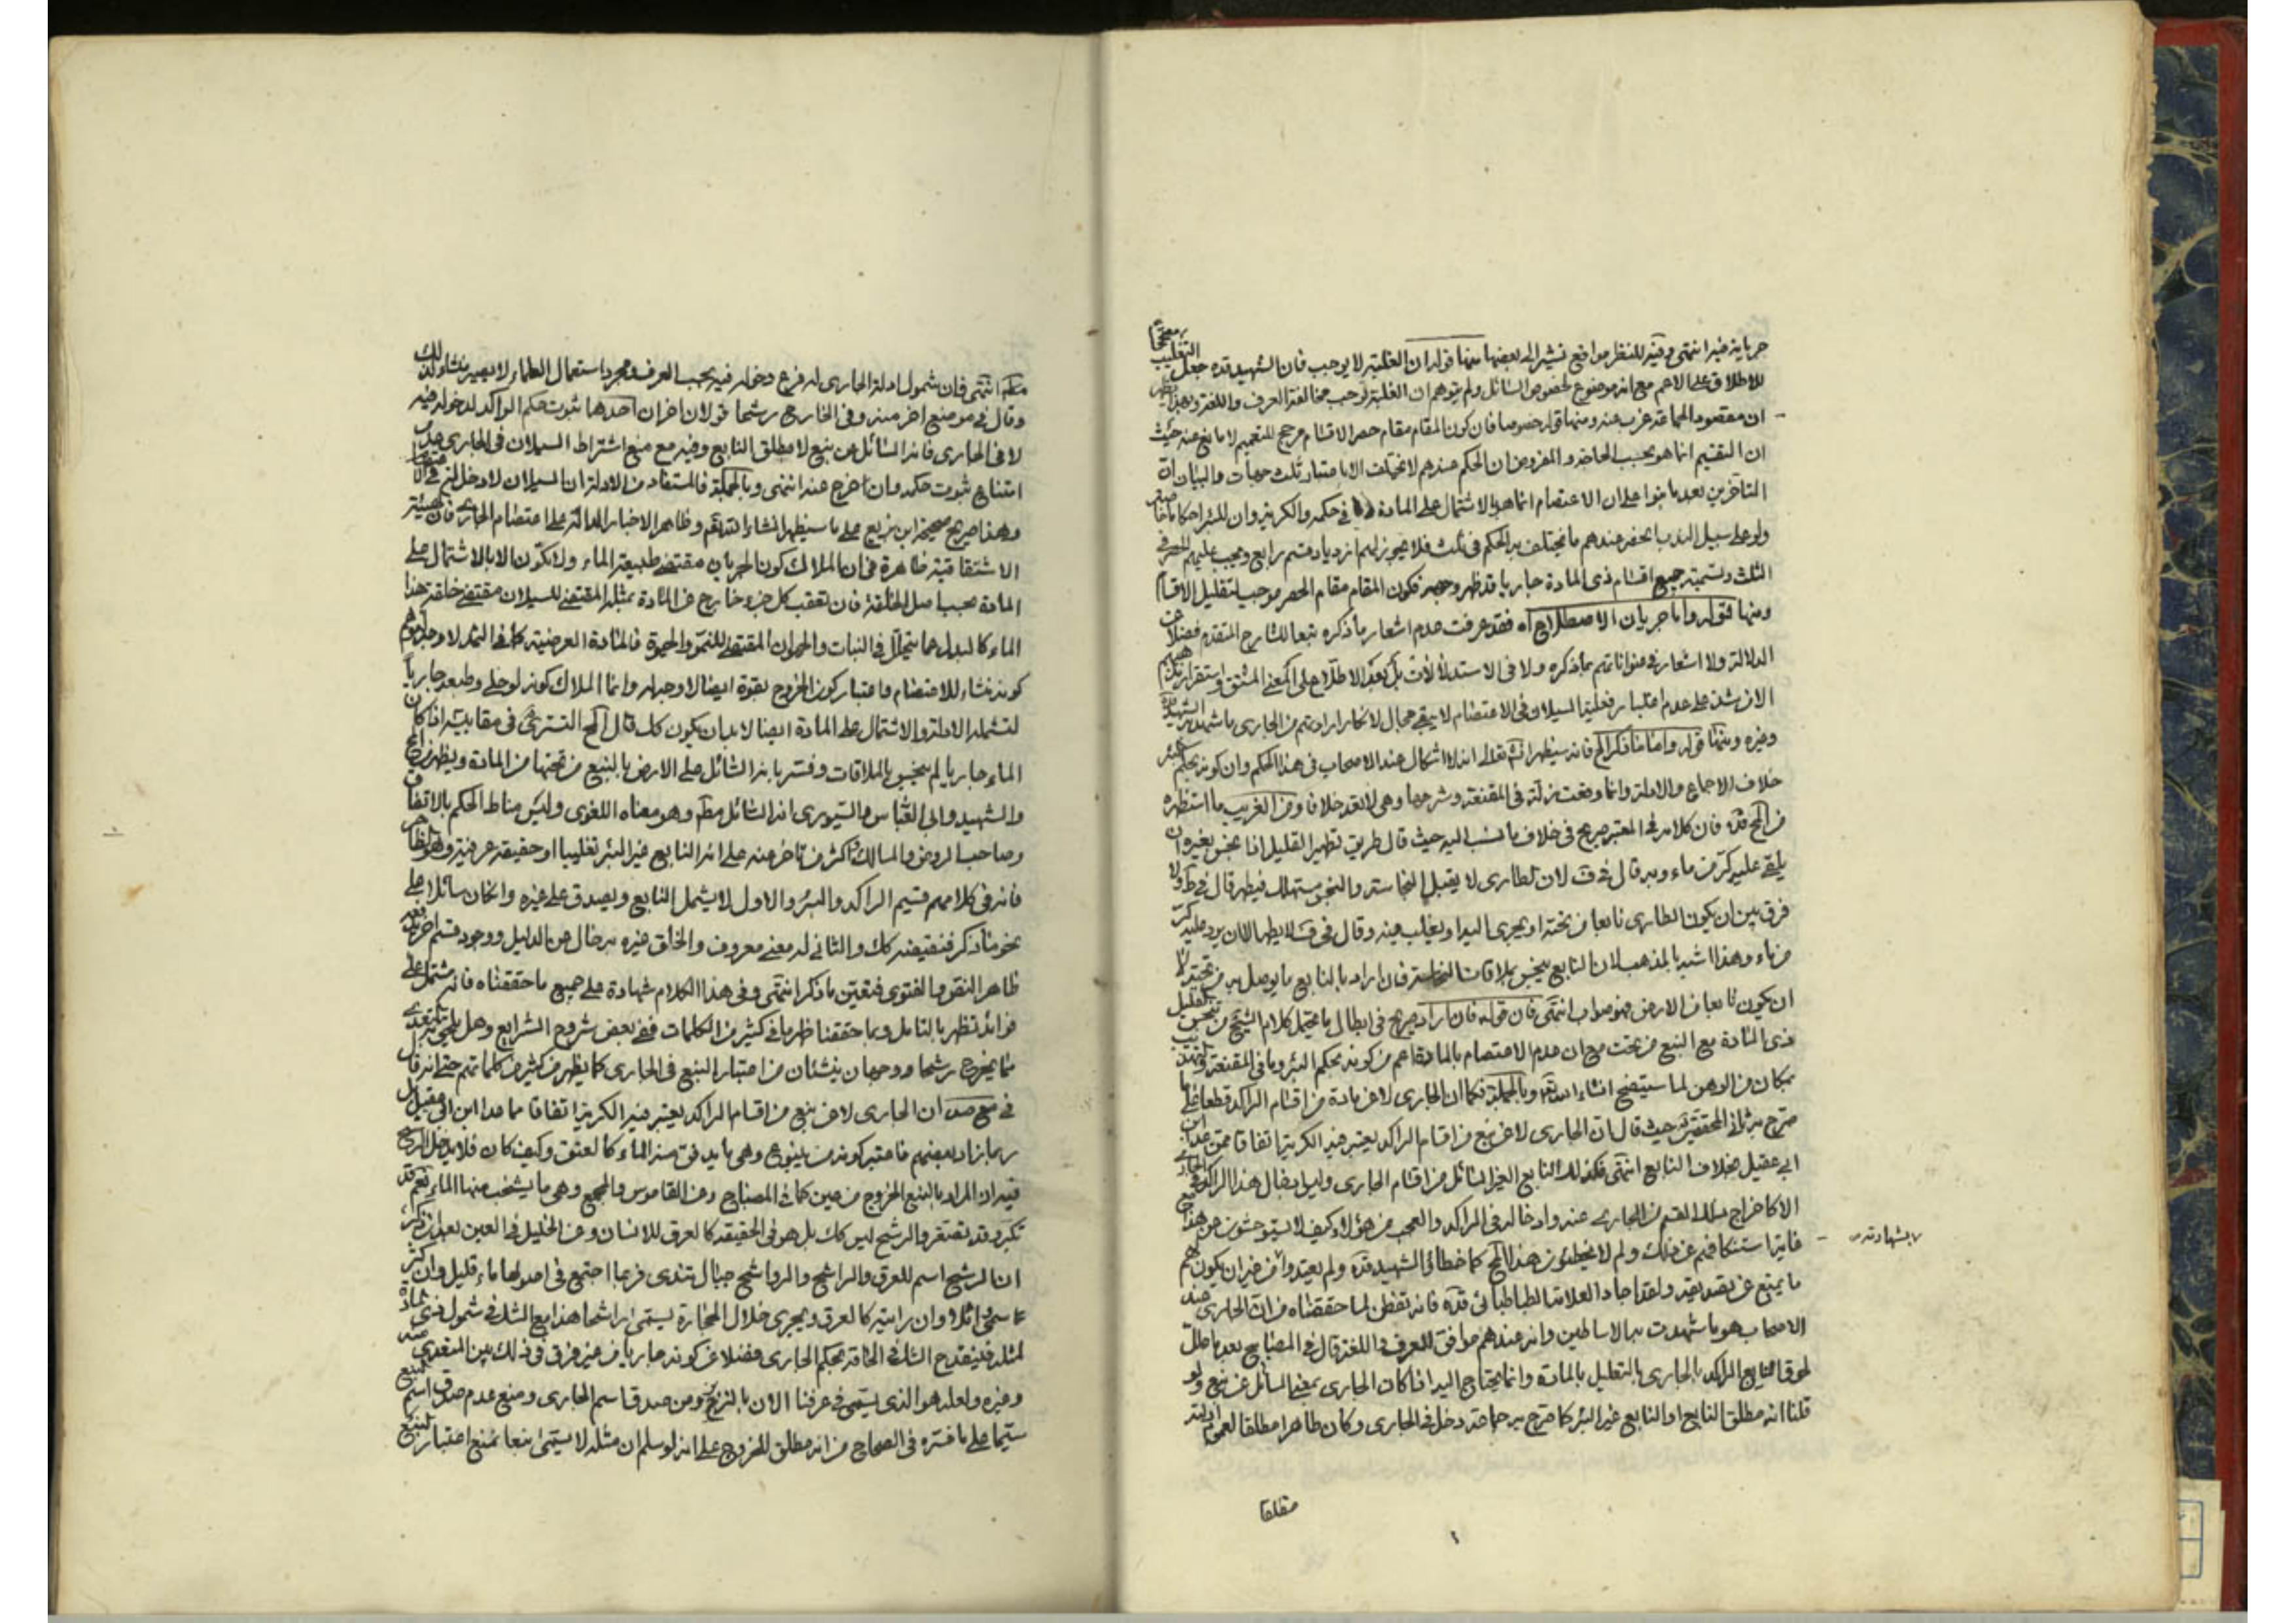 جريانه فيه انتهى وفيه للنظر مواقع نشير الى بعضها منها قوله ان الغلبة لا يوجب فان الشهيد قده جعل التغليب مصححا
للاطلاق على الاعم مع انه موضوع لخصوص السائل ولم يتوهم ان الغلبة توجب مخالفة العرف واللغة وبهذا يظهر
ان مقصود الجماعة عزب عنه ومنها قوله خصوصا فان كون المقام مقام حصر الاقسام مرجح للتعميم لا مانع عنه حيث
ان التقسيم انما هو بحسب الحاجة والمفروض ان الحكم عندهم لا يختلف الا باعتبار ثلث جهات والبيان ان
المتاخرين بعد ما بنوا على ان الاعتصام انما هو بالاشتمال على المادة في حكمه والكرية وان للبئر احكاما خاصة
ولو على سبيل الندب انحصر عندهم ما يختلف به الحكم في ثلث فلا يجوز لهم ازدياد قسم رابع ويجب عليهم الحصر في
الثلث وتسمية جميع اقسام ذي المادة جاريا قد ظهر وجهه فكون المقام مقام الحصر موجب لتقليل الاقسام
ومنها قوله واما جريان الاصطلاح اه فقد عرفت عدم اشعار ما ذكره تبعا للشارح المتقدم فضلا عن
الدلالة ولا اشعار في عنواناتهم بما ذكره ولا في الاستدلالات بل بعد الاطلاع على المعنى المشتق واستقرار
الان شد على عدم اعتبار فعلية السيلان في الاعتصام لا يبقى مجال لانكار ارادتهم من الجاري ما شهد به الشهيد
وغيره ومنها قوله واما ما ذكر الخ فانه سيظهر انش تعالى انه لا اشكال عند الاصحاب في هذا الحكم وان كونه بحكم البئر
خلاف الاجماع والادلة وانما وقعت زلة في المقنعة وشرحها وهي لا تعد خلافا ومن الغريب ما استظهره
من المحقق قده فان كلامه في المعتبر صريح في خلاف ما نسب اليه حيث قال طريق تطهير القليل اذا نجس بغيره ان
يلقى عليه كر من ماء وبه قال في ف لان الطاري لا يقبل النجاسة والنجس مستهلك فيطهر قال في ط ولا
فرق بين ان يكون الطاري نابعا من تحته او يجري اليه او يغلب عينه وقال في ف لا يطهر الا ان يرد عليه كر
من ماء وهذا اشبه بالمذهب لان النابع ينجس بملاقات النجاسة فان اراد بالنابع ما يوصل به من تحته لا
ان يكون نابعا من الارض فهو صواب انتهى فان قوله فان اراد صريح في ابطال ما يحتمل كلام الشيخ من تنجس القليل
ذي المادة مع النبع من تحت مع ان عدم الاعتصام بالمادة اعم من كونه بحكم البئر وما في المقنعة
بمكان من الوهن لما سيتضح انشاء الله تعالى وبالجملة فكما ان الجاري لا عن مادة من اقسام الراكد قطعا على ما
صرح به ثاني المحققين حيث قال ان الجاري لا عن نبع من اقسام الراكد يعتبر فيه الكرية اتفاقا ممن عدا ابن
ابي عقيل بخلاف النابع انتهى فكذلك النابع الغير السائل من اقسام الجاري وليس ادخال هذا الراكد في الجاري
الا كاخراج ذلك القسم من الجاري عنه وادخاله في الراكد والعجب من هؤلاء كيف لا يستوحشون من هذا مع
غاية استنكافهم عن ذلك ولم لا يخطئون هذا المحقق كما خطأ الشهيد قده ولم يعتدوا من غير ان يكون لهم
بشهادته
ما يمنع عن تصديقه ولقد اجاد العلامة الطباطبائي قده فانه تفطن لما حققناه من ان الجاري عند
الاصحاب هو ما شهدت به الاساطين وانه عندهم موافق للعرف في اللغة قال في المصابيح بعد ما علل
لحوق النابع الراكد بالجاري بالتعليل بالمادة وانما يحتاج اليه اذا كان الجاري بمعنى السائل عن نبع ولو
قلنا انه مطلق النابع او النابع غير البئر كما صرح به جماعة دخل في الجاري وكان طاهرا مطلقا لعموم ادلته
مطلقا
حكم انتهى فان شمول ادلة الجاري له فرع دخوله فيه بحسب العرف ومجرد استعمال العلماء لا يصير منشأ لذلك
وقال في موضع اخر منه وفي الخارج رشحا قولان اخران احدهما ثبوت حكم الراكد لدخوله فيه
لا في الجاري فانه السائل عن نبع لا مطلق النابع وفيه مع منع اشتراط السيلان في الجاري عدم
امتناع ثبوت حكمه وان خرج عنه انتهى وبالجملة فالمستفاد من الادلة ان السيلان لا دخل له في الاعتصام
وهذا صريح صحيحة ابن بزيع على ما سيظهر انشاء الله تعالى وظاهر الاخبار الدالة على اعتصام الجاري فان الهيئة
الاشتقاقية ظاهرة في ان الملاك كون الجريان مقتضى طبيعة الماء ولا يكون الا بالاشتمال على
المادة بحسب اصل الخلقة فان تعقب كل جزء خارج من المادة بمثله المقتضي للسيلان مقتضى خلقة هذا
الماء كالبدل عما يتحلل في النبات والحيوان المقتضي للنمو والحيوة فالمادة العرضية كما في الثمد لا وجه لتوهم
كونه منشاء للاعتصام واعتبار كون الخروج بقوة ايضا لا وجه له وانما الملاك كونه لو خلي وطبعه جاريا
لتشمله الادلة والاشتمال على المادة ايضا لا بد ان يكون كك قال المحقق التستري في مقابيسه اذا كان
الماء جاريا لم ينجس بالملاقات وفسر بانه السائل على الارض بالنبع من تحتها من المادة ويظهر من المحقق
والشهيد وابي العباس والسيوري انه السائل مطلقا وهو معناه اللغوي وليس مناط الحكم بالاتفاق
وصاحب الروض والمسالك واكثر من تاخر عنه على انه النابع غير البئر تغليبا او حقيقة عرفية وهو الظاهر
فانه في كلامهم قسيم الراكد والبئر والاول لا يشمل النابع ويصدق على غيره وان كان سائلا على
نحو ما ذكر فنقيضه كك والثاني له معنى معروف والحاق غيره به خال عن الدليل ووجود قسم اخر بعد
ظاهر النص والفتوى فتعين ما ذكر انتهى وفي هذا الكلام شهادة على جميع ما حققناه فانه مشتمل على
فوائد تظهر بالتامل وبما حققنا ظهر ما في كثير من الكلمات ففي بعض شروح الشرايع وهل يلحق بالتعدي
ما يخرج رشحا وجهان ينشئان من اعتبار النبع في الجاري كما يظهر من كثير من كلماتهم حتى انه قال
في جامع صد ان الجاري لا عن نبع من اقسام الراكد يعتبر فيه الكرية اتفاقا ما عدا ابن ابي عقيل بل
ربما زاد بعضهم فاعتبر كونه من ينبوع وهي ما يدفق منه الماء كالعنق وكيف كان فلا يدخل الرشح
فيه ان المراد بالنبع الخروج من عين كما في المصباح وعن القاموس والمجمع وهي ما ينشعب منها الماء نعم قد
تكبر وقد تصغر والرشح ليس كك بل هو في الحقيقة كالعرق للانسان وعن الخليل في العين بعد ان ذكر
ان الرشح اسم للعرق والراشح والرواشح جبال تندى فربما اجتمع في اصولها ماء قليل وان كثر
سمي وشلا وان رايته كالعرق ويجري خلال الحجارة يسمى راشحا هذا مع الشك في شمول ذي المادة
لمثله فينقدح الشك في الحاقه بحكم الجاري فضلا عن كونه جاريا من غير فرق في ذلك بين المتعدي منه
وغيره ولعله هو الذي يسمى في عرفنا الان بالنز نحو ومن صدق اسم الجاري ومنع عدم صدق اسم النبع
سيما على ما فسره في الصحاح من انه مطلق الخروج على انه لو سلم ان مثله لا يسمى نبعا نمنع اعتبار النبع